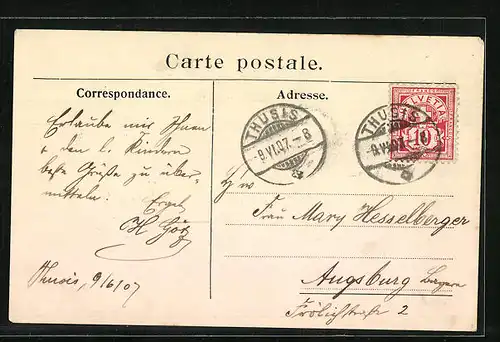 Carte postale.
Correspondance.
Adresse.
Erlaube mir Ihnen
+ den l. Kindern
beste Grüße zu über-
mitteln.
Ergebn.
H Götz
Thusis, 9/6/07
THUSIS
-9.VI.07.-8
THUSIS
-9.VI.07
HELVETIA
10
Frau Mary Hesselberger
Augsburg Bayern
Frölichstraße 2